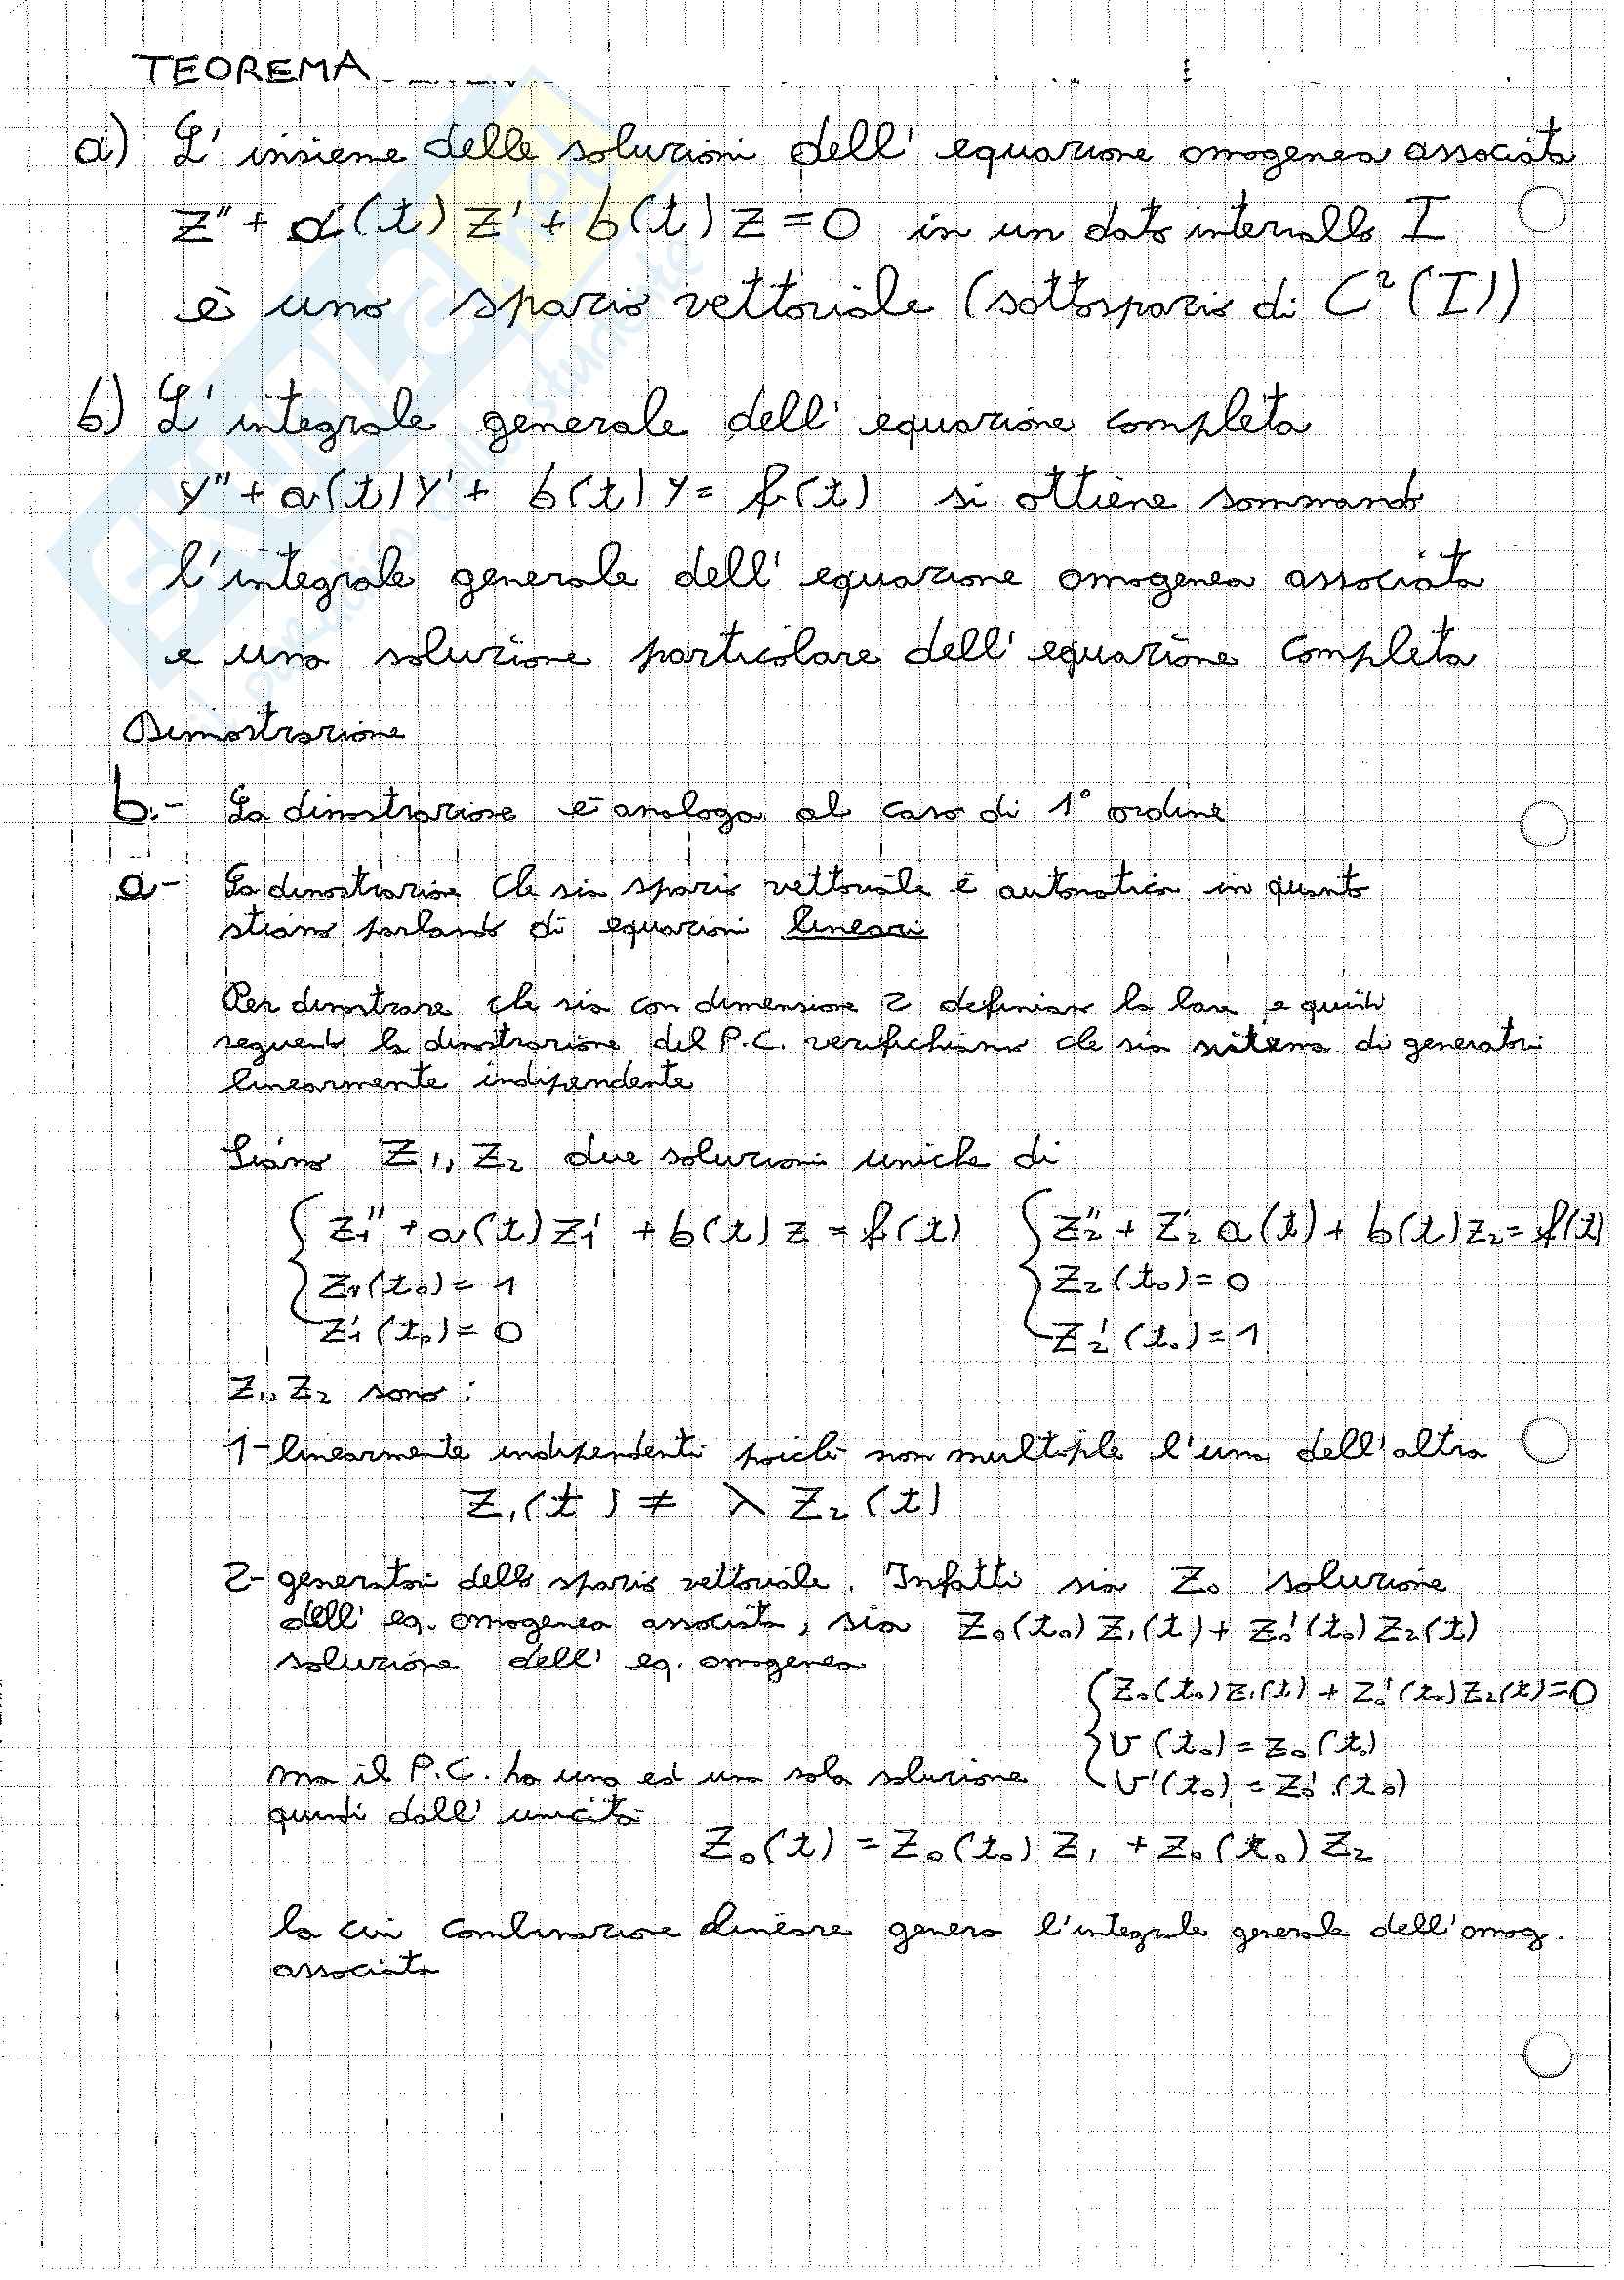 TEOREMA
a) L' insieme delle soluzioni dell' equazione omogenea associata
z" + a(t) z' + b(t) z = 0 in un dato intervallo I
è uno spazio vettoriale (sottospazio di C²(I))
b) L' integrale generale dell' equazione completa
y" + a(t) y' + b(t) y = f(t) si ottiene sommando
l'integrale generale dell' equazione omogenea associata
e una soluzione particolare dell' equazione completa
Dimostrazione
b.- La dimostrazione è analoga al caso di 1° ordine
a- La dimostrazione che sia spazio vettoriale è automatica in quanto
stiamo parlando di equazioni lineari
Per dimostrare che sia con dimensione 2 definiamo la base e quindi
seguendo la dimostrazione del P.C. verifichiamo che sia sistema di generatori
linearmente indipendente
Siano z₁, z₂ due soluzioni uniche di
{ z₁" + a(t) z₁' + b(t) z = f(t) { z₂" + z₂' a(t) + b(t) z₂ = f(t)
z₁(t₀) = 1 z₂(t₀) = 0
z₁'(t₀) = 0 z₂'(t₀) = 1
z₁, z₂ sono :
1- linearmente indipendenti poiché non multiple l'una dell'altra
z₁(t) ≠ λ z₂(t)
2- generatori dello spazio vettoriale. Infatti sia z₀ soluzione
dell' eq. omogenea associata, sia z₀(t₀) z₁(t) + z₀'(t₀) z₂(t)
soluzione dell' eq. omogenea
{ z₀(t₀) z₁(t) + z₀'(t₀) z₂(t) = 0
v(t₀) = z₀(t₀)
ma il P.C. ha una ed una sola soluzione v'(t₀) = z₀'(t₀)
quindi dall' unicità
z₀(t) = z₀(t₀) z₁ + z₀(t₀) z₂
la cui combinazione lineare genera l'integrale generale dell'omog.
associata